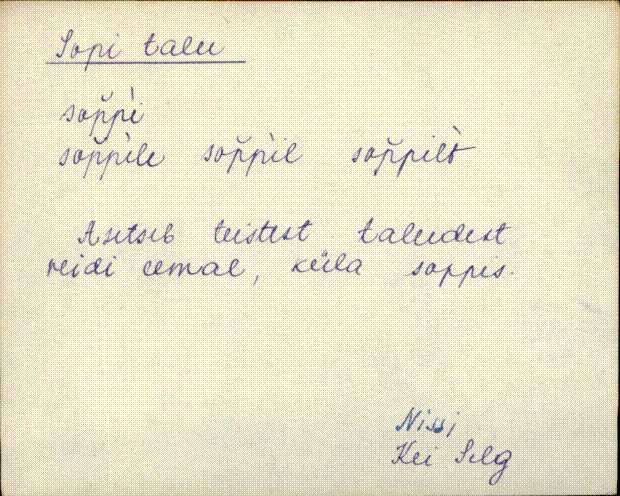 Sopi talu
sop̆p̀i
sop̆p̀ile sop̆p̀il sop̆pilt̀
Asetseb teistest taludest
veidi eemal, küla soppis.
Nissi
Kei Selg